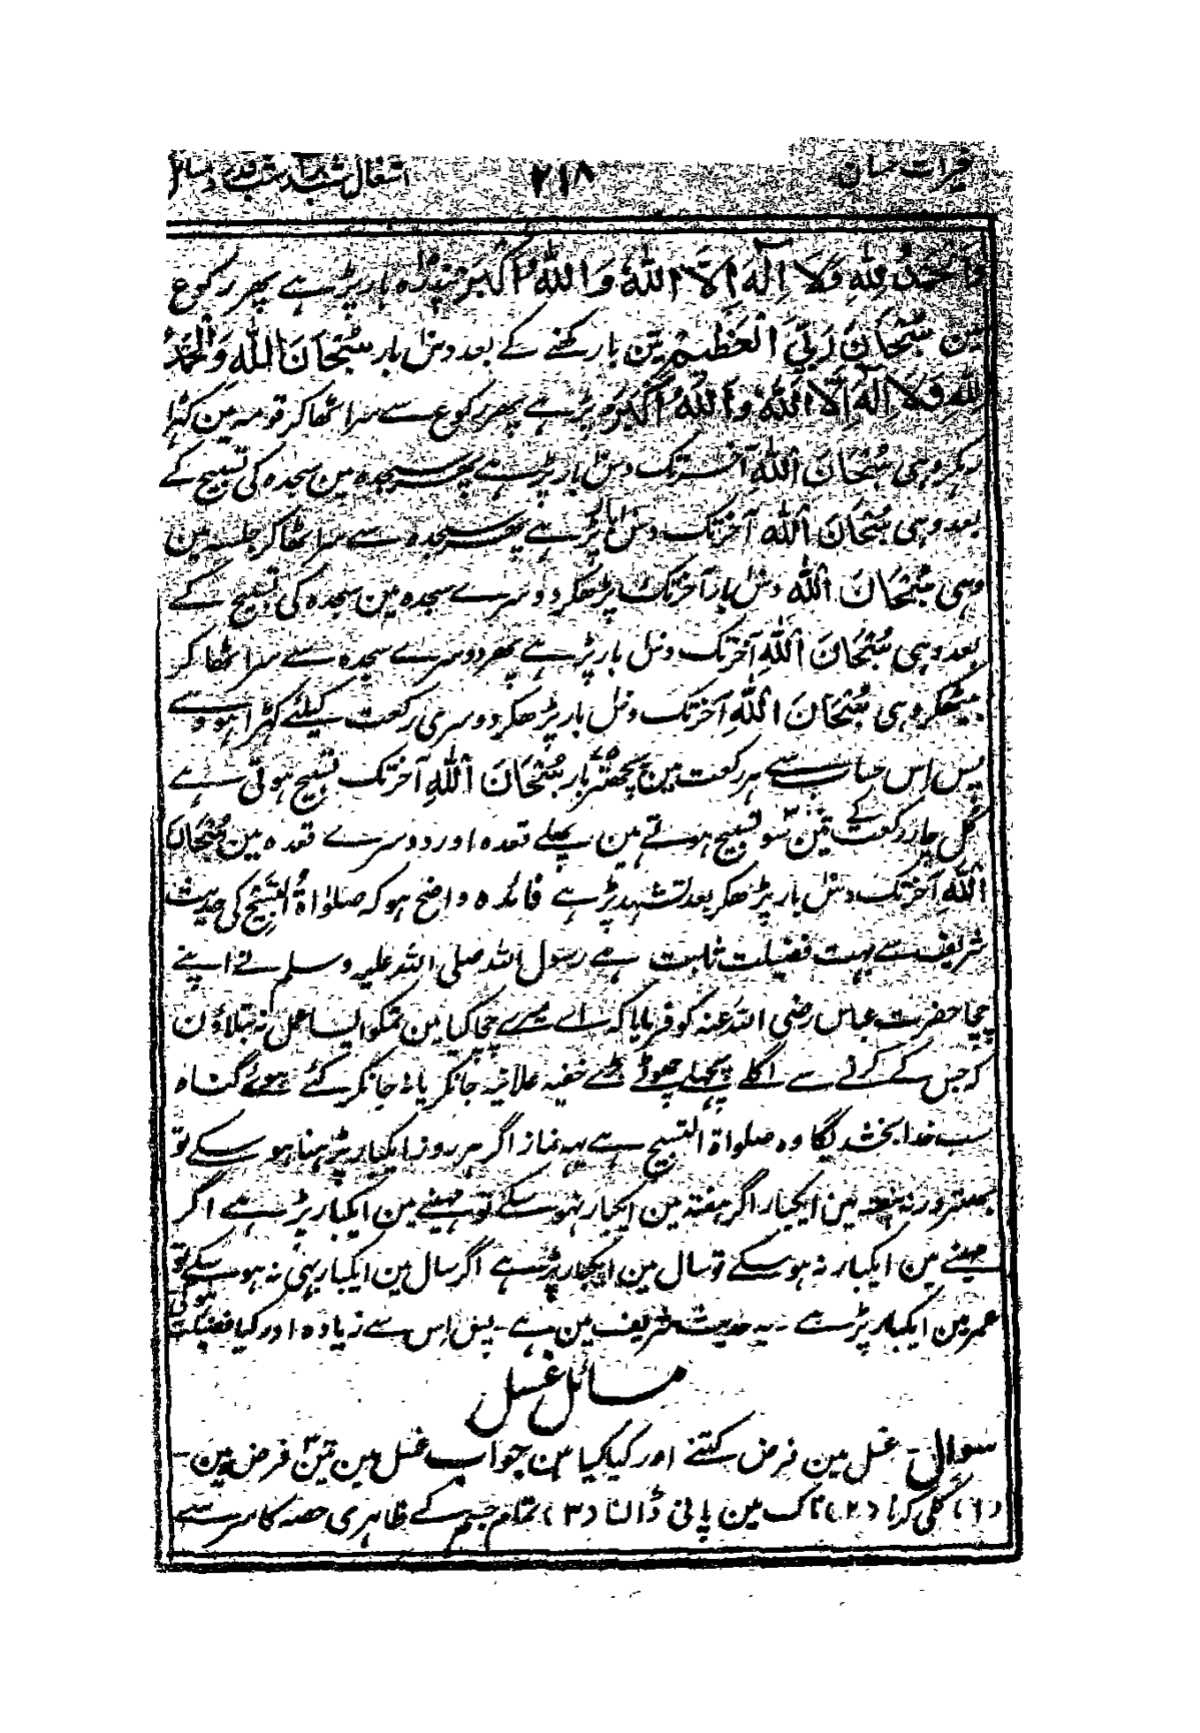 ۲۱۸
وَالْحَمْدُ لِلّٰهِ وَلَا اِلٰهَ اِلَّا اللّٰهُ وَاللّٰهُ اَكْبَرُ پندرہ بار پڑہے پھر رکوع
مین سُبْحَانَ رَبِّيَ الْعَظِيْمِ تین بار کہنے کے بعد دس بار سُبْحَانَ اللّٰهِ وَالْحَمْدُ
لِلّٰهِ وَلَا اِلٰهَ اِلَّا اللّٰهُ وَاللّٰهُ اَكْبَرُ پڑہے پھر رکوع سے سر اٹھا کر قومہ مین کہڑا
ہوکر وہی سُبْحَانَ اللّٰهِ آخر تک دس بار پڑہے پھر سجدہ مین سجدہ کی تسبیح کے
بعد وہی سُبْحَانَ اللّٰهِ آخر تک دس بار پڑہے پھر سجدہ سے سر اٹھا کر جلسہ مین
وہی سُبْحَانَ اللّٰهِ دس بار آخر تک پڑھکر دوسرے سجدہ مین سجدہ کی تسبیح کے
بعد وہی سُبْحَانَ اللّٰهِ آخر تک دس بار پڑہے پھر دوسرے سجدہ سے سر اٹھا کر
بیٹھکر وہی سُبْحَانَ اللّٰهِ آخر تک دس بار پڑھکر دوسری رکعت کیلئے کھڑا ہووے
پس اِس حساب سے ہر رکعت مین پچھتر بار سُبْحَانَ اللّٰهِ آخر تک تسبیح ہوتی ہے
کُل چار رکعت کے تین سو تسبیح ہوتے ہین پہلے قعدہ اور دوسرے قعدہ مین سُبْحَانَ
اللّٰهِ آخر تک دس بار پڑھکر بعد تشہد پڑہے فائدہ واضح ہو کہ صلواۃ التسبیح کی حدیث
شریف سے بہت فضیلت ثابت ہے رسول اللہ صلی اللہ علیہ وسلم نے اپنے
چچا حضرت عباس رضی اللہ عنہ کو فرمایا کہ اے میرے چچا کیا مین تمکو ایسا عمل نہ بتلاؤن
کہ جس کے کرنے سے اگلے پچھلے چھوٹے بڑے خفیہ علانیہ جانکر یا نہ جانکر کئے ہوئے گناہ
سب خدا بخشدیگا وہ صلواۃ التسبیح ہے یہہ نماز اگر ہر روز ایکبار پڑہنا ہوسکے تو
بہتر ورنہ ہفتہ مین ایکبار اگر ہفتہ مین ایکبار نہو سکے تو مہینے مین ایکبار پڑہے اگر
مہینے مین ایکبار نہ ہوسکے تو سال مین ایکبار پڑہے اگر سال مین ایکبار بہی نہ ہوسکے تو
عمر مین ایکبار پڑہے ۔ یہ حدیث شریف مین ہے ۔ پس اِس سے زیادہ اور کیا فضیلت ہوگی
مسائل غسل
سوال غسل مین فرض کتنے اور کیا کیا ہین جواب غسل مین تین فرض ہین ۔
(۱) کلی کرنا (۲) ناک مین پانی ڈالنا (۳) تمام جسم کے ظاہری حصہ کا سر سے